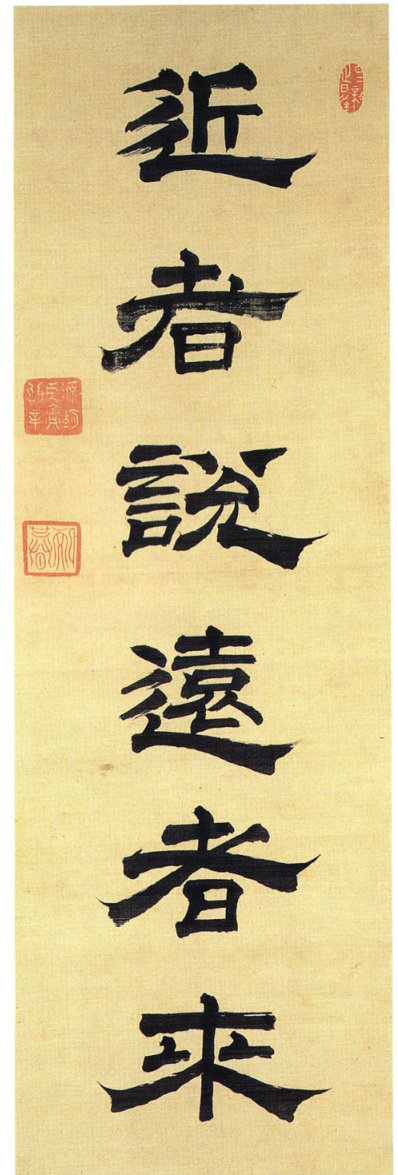 近者說遠者來